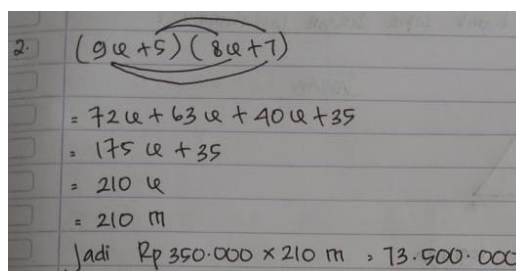 2. (9x + 5) (8x + 7)
= 72x + 63x + 40x + 35
= 175x + 35
= 210x
= 210 m
Jadi Rp 350.000 × 210 m = 73.500.000